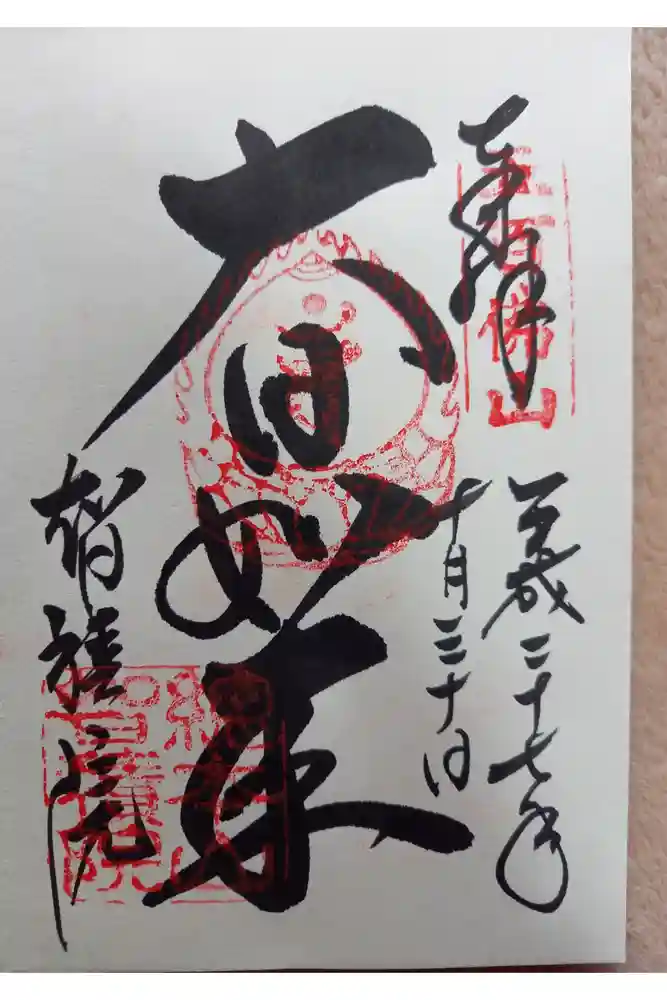 奉拝
五百佛山
平成二十七年
十月三十日
大日如来
智積院
總本山
智積院